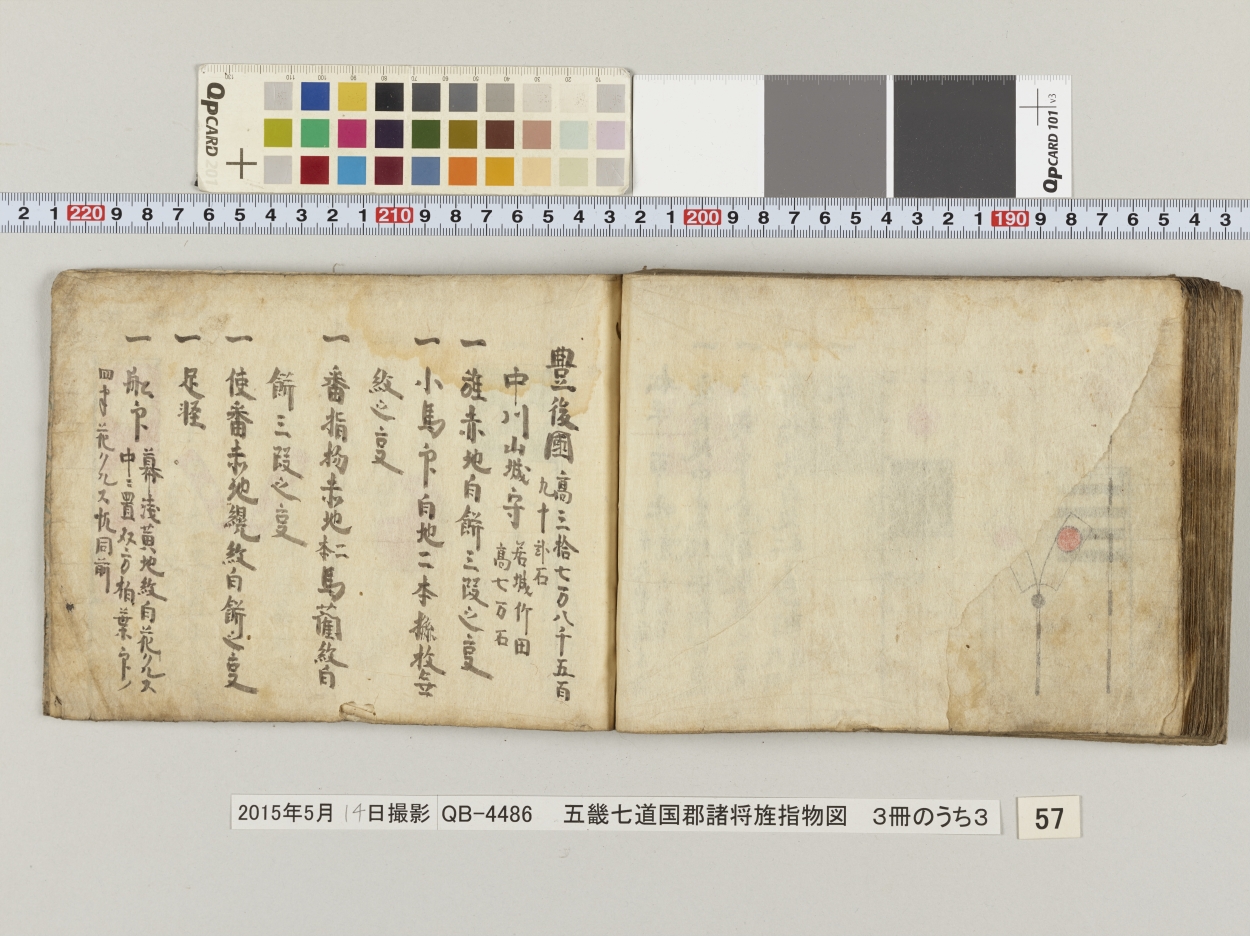 QPCARD 201
QPCARD 101 v3
2 1 220 9 8 7 6 5 4 3 2 1 210 9 8 7 6 5 4 3 2 1 200 9 8 7 6 5 4 3 2 1 190 9 8 7 6 5 4 3
豊後國 高三拾七万八千五百
九十 石
中川山城守 居城竹田
高七万石
一 旌赤地白餅三段之㕝
一 小馬印白地二本 枚
紋之㕝
一 番指物赤地二本馬藺紋白
餅三段之㕝
一 使番赤地 紋白餅之㕝
一 足軽
一 船印 幕浅黄地紋白花クルス
中ニ置双方柏葉印ノ
四半花クルス 同前
2015年5月14日撮影 QB-4486 五畿七道国郡諸将旌指物図 3冊のうち3
57